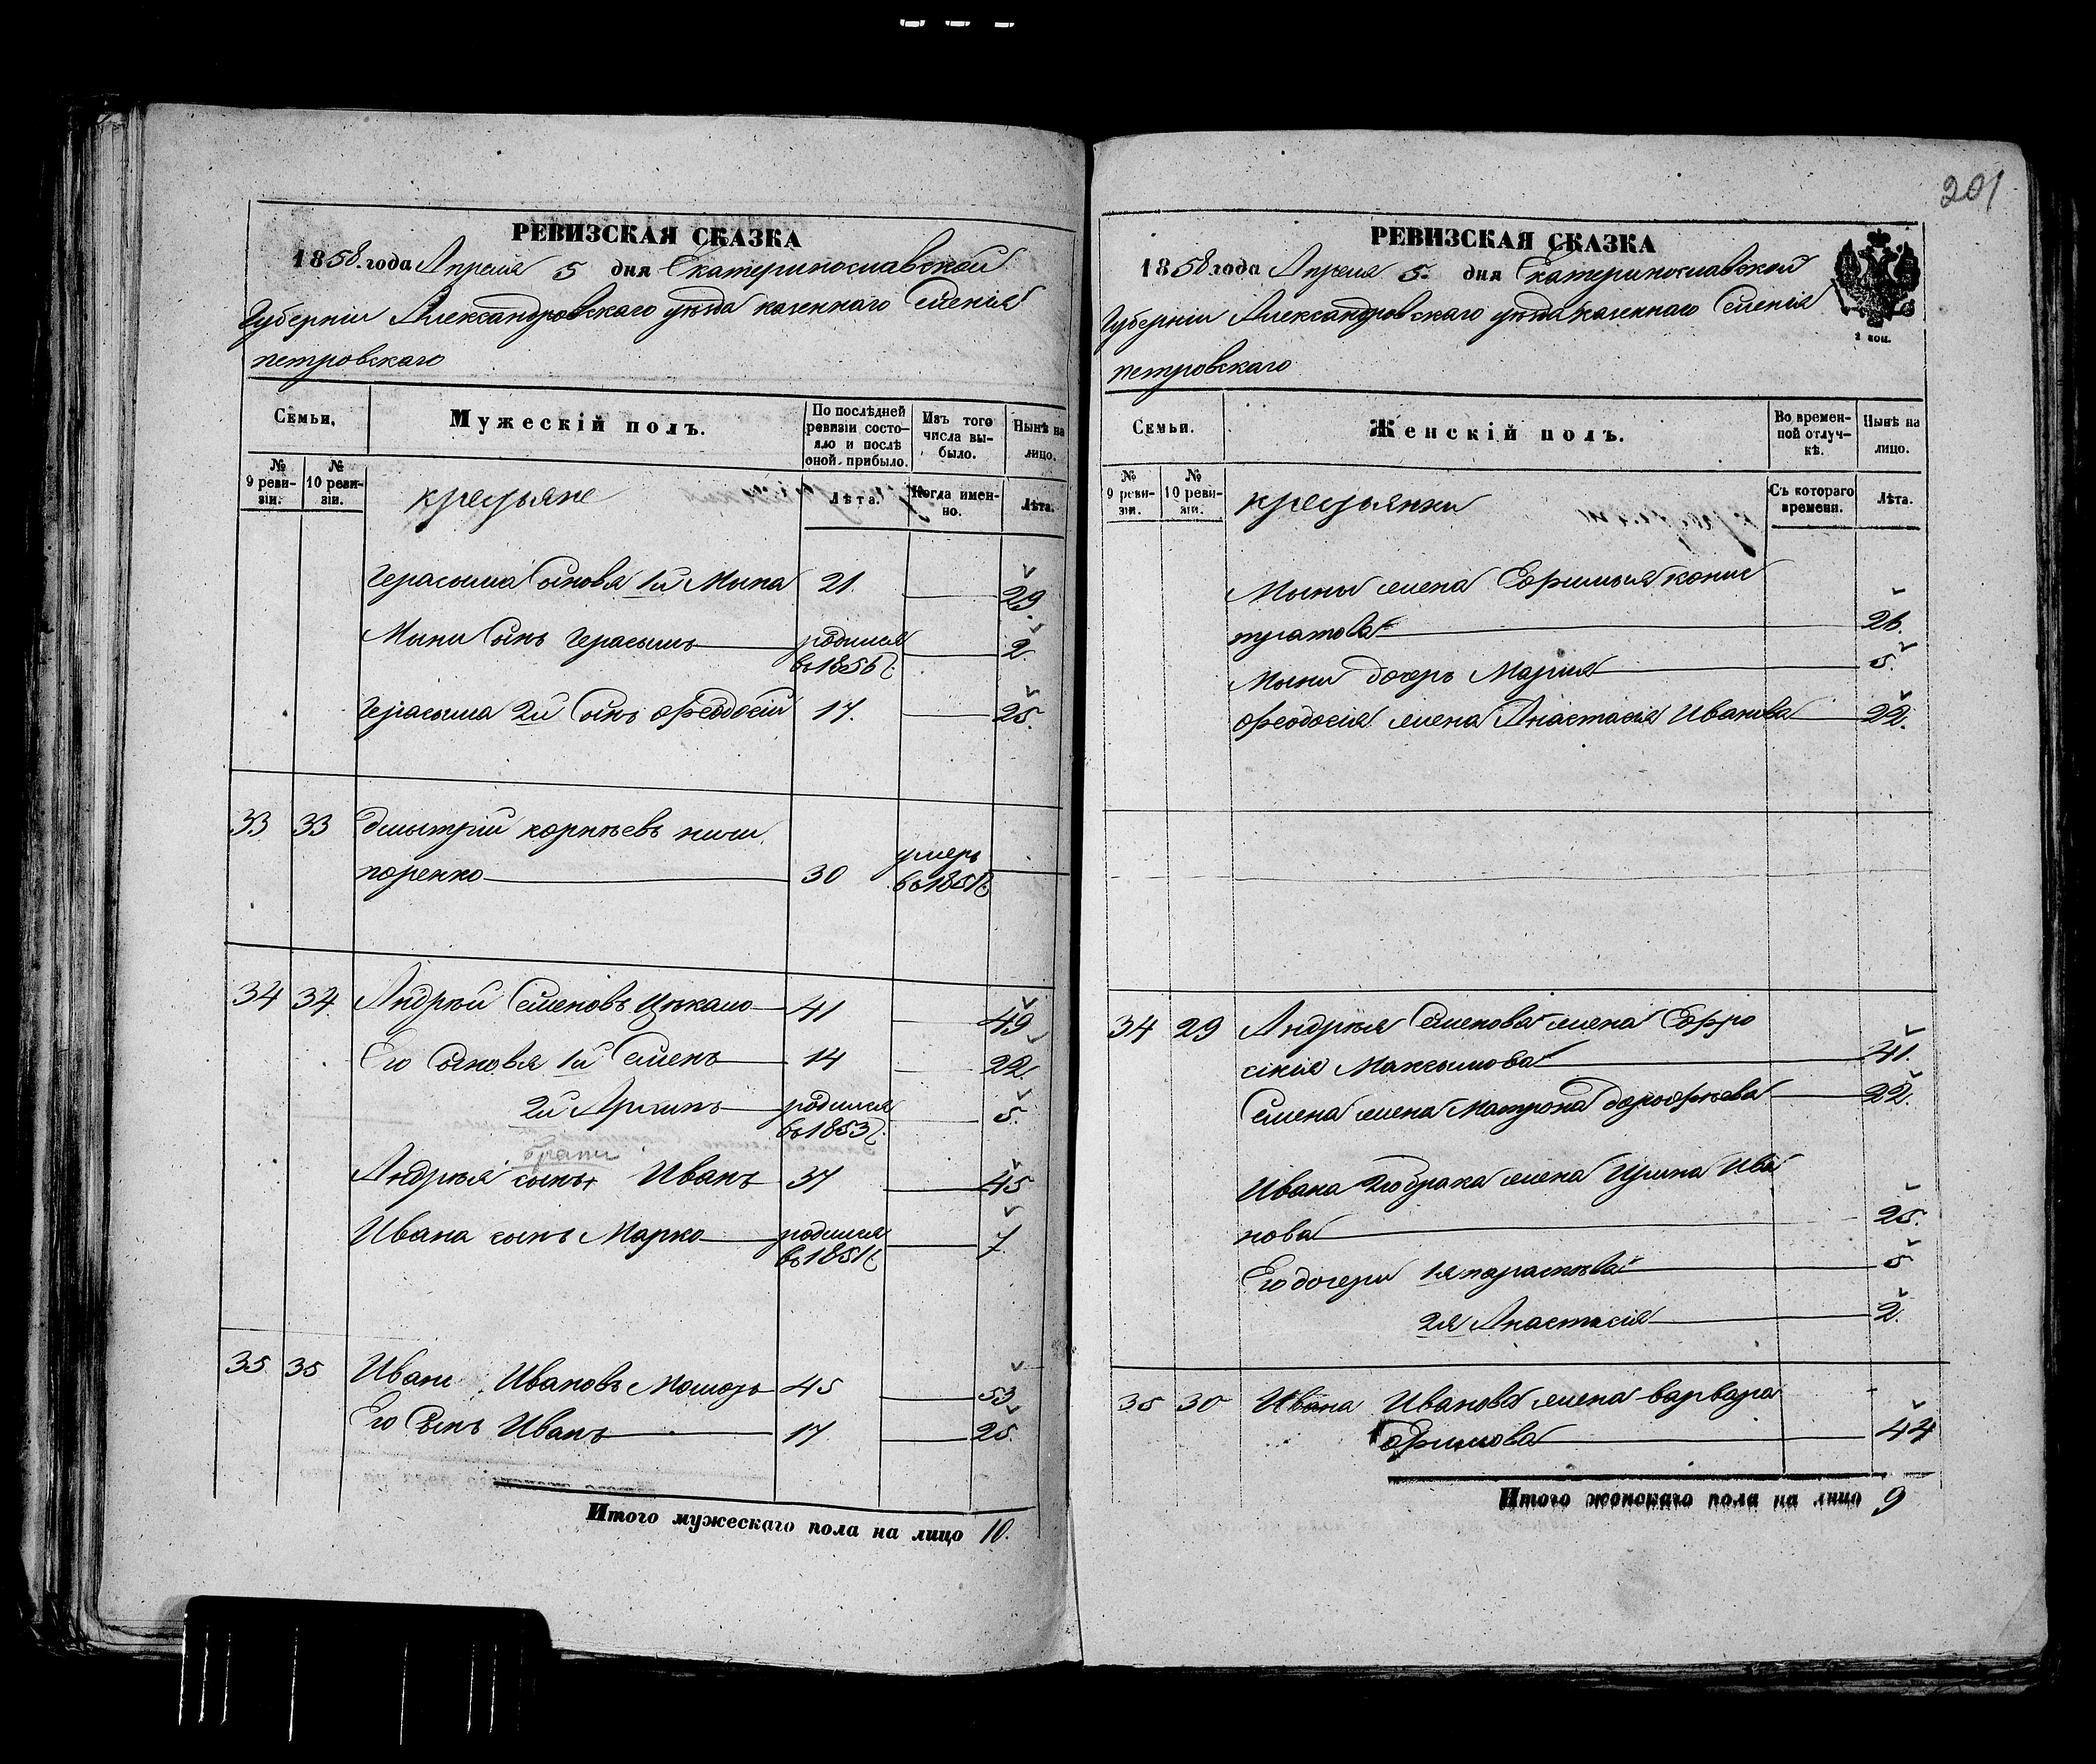 201
РЕВИЗСКАЯ СКАЗКА
1858. года Апреля 5 дня Екатеринославской
Губерніи Александровского уезда казенного Селенія
петровскаго
Семьи. Мужескій полъ. По послѣдней ревизіи состояло и послѣ оной прибыло. Изъ того числа выбыло. Нынѣ на лицо.
№ 9 ревизіи. № 10 ревизіи. крестьяне Лѣта. Когда именно. Лѣта.
Герасыма Сыновя 1й Мына 21. 29.
Мыни Сынъ Герасымъ родился въ 1856 г. 2.
Герасыма 2й Сынъ Феодосій 17. 25.
33 33 Дмытрій корнѣевъ ничи
поренко 30 умеръ въ 1851 г.
34 34 Андрѣй Семеновъ Цекало 41 49
Его Сыновя 1й Семенъ 14 22.
2й Архипъ родился въ 1853 г. 5.
братъ
Андрѣя сынъ Иванъ 37 45
Ивана сынъ Марко родился въ 1851 г. 7
35 35 Иванъ Ивановъ 45 53
Его Сынъ Иванъ 17 25.
Итого мужескаго пола на лицо 10.
РЕВИЗСКАЯ СКАЗКА
1858 года Апреля 5. дня Екатеринославской
Губерніи Александровскаго уезда казенного Селенія
петровскаго
2 коп.
Семьи. Женскій полъ. Во временной отлучкѣ. Нынѣ на лицо.
№ 9 ревизіи. № 10 ревизіи. крестьянки Съ котораго времени. Лѣта.
Мыны жена Ефимыя конис
тратова 26.
Мыни дочерь Мария 5.
Феодосія жена Анастасія Иванова 22.
34 29 Андрѣя Семенова жена Евфро
сінія Максымова 41.
Семена жена Матрона дорофѣева 22.
Ивана 2го брака жена Ирина Ива
нова 25.
Его дочери 1я параскева 5
2я Анастасія 2.
35 30 Ивана Иванова жена варвара
Ефимова 44
Итого женскаго пола на лицо 9